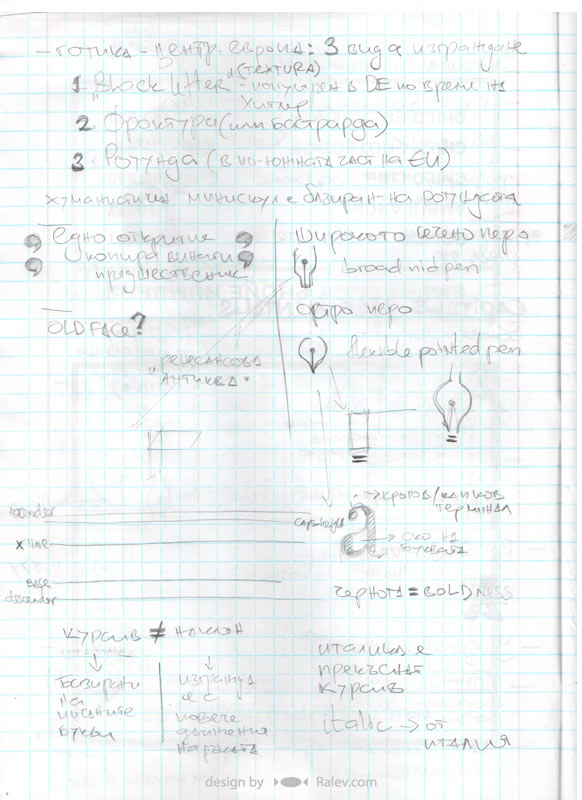 - готика - центр. европа: 3 вида изграждане
1 "Black letter" (TEXTURA) - популярен в DE по време на
Хитлер
2 Фрактура (или бастарда)
3 Ротунда (в по-южната част на EU)
хуманистичен минускул е базиран на ротундата
Едно откритие
копира винаги
предшественик
OLD FACE?
"РЕНЕСАНСОВА
АНТИКВА"
широкото сечено перо
broad nid pen
остро перо
flexible pointed pen
ascender
x line
base
descender
caps-height
a
кръгов/капков
терминал
око на
буквата
чернота = BOLDNESS
курсив ≠ наклон
базирани
на
писаните
букви
изгражда
се с
повече
движения
на ръката
италика е
прекъснат
курсив
italic → от
италия
design by Ralev.com